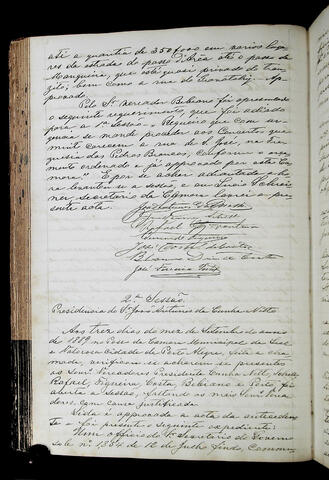 até a quantia de 350$000 em varios luga-
res da estrada do passo d'Areia até o passo da
Mangueira, que está quasi privado do tran-
zito; bem como a rua do
provado.
Pelo Sr. Vereador Bibiano foi apresentado
o seguinte requerimento, que foi adiado
para a 1ª Sessão. "Requeiro que com ur-
gencia se mande proceder aos concertos que
muito carecem a rua de S. José, na tra-
vessa das Pedras Brancas, conforme o orça-
mento ordenado e já approvado por esta Ca-
mara." E por se achar adiantada a ho-
ra levantou-se a sessão, e eu
secretario da Camara lavrei a pre-
sente acta.
José
Rafael
José Costa
Bibiano Dias de Castro
José Ferreira Porto
2ª Sessão.
Presidencia do Sr. José Arthuro da Cunha Netto
Aos tres dias do mez de Setembro do anno
de 1889 no Paço da Camara Municipal da Leal
e Valorosa Cidade de Porto Alegre, feita a cha-
mada, verificou-se acharem se presentes
os Senrs. Vereadores Presidente Cunha Netto,
Rafael, Figueira, Costa, Bibiano e Porto, foi
aberta a Sessão, faltando os mais Senrs. Verea-
dores com causa justificada.
Lida e approvada a acta da anteceden-
te e foi presente o seguinte expediente:
Hum officio do Sr. Secretario do Governo
sob nº 1354 de 12 de Julho findo, Commu-